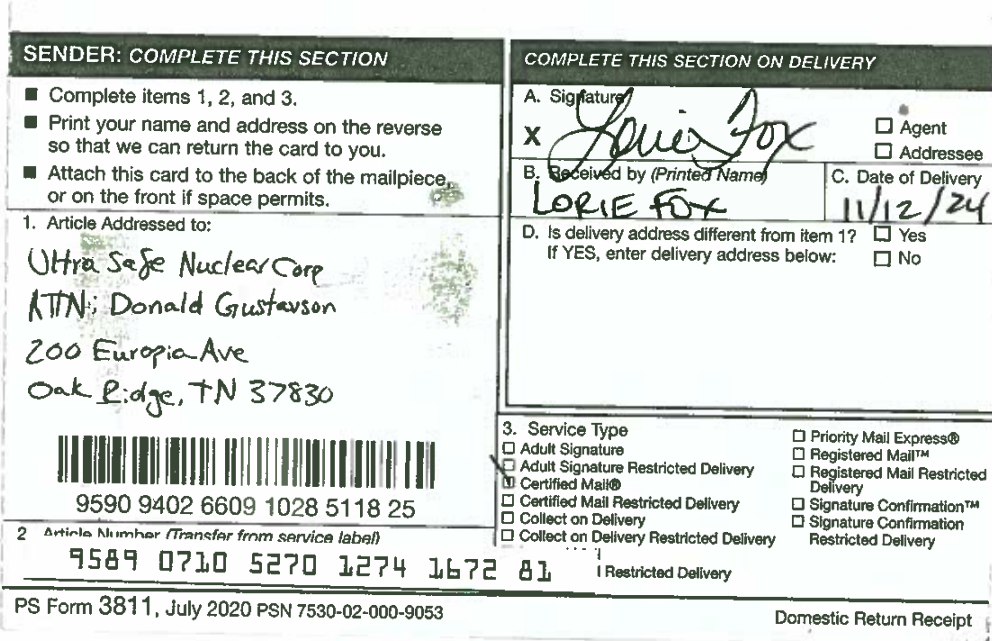 SENDER: COMPLETE THIS SECTION
■ Complete items 1, 2, and 3.
■ Print your name and address on the reverse
so that we can return the card to you.
■ Attach this card to the back of the mailpiece,
or on the front if space permits.
1. Article Addressed to:
Ultra Safe Nuclear Corp
ATTN: Donald Gustavson
200 Europia Ave
Oak Ridge, TN 37830
9590 9402 6609 1028 5118 25
2 Article Number (Transfer from service label)
9589 0710 5270 1274 1672 81
COMPLETE THIS SECTION ON DELIVERY
A. Signature
X Lorie Fox
☐ Agent
☐ Addressee
B. Received by (Printed Name)
LORIE FOX
C. Date of Delivery
11/12/24
D. Is delivery address different from item 1? ☐ Yes
If YES, enter delivery address below: ☐ No
3. Service Type
☐ Adult Signature
☐ Adult Signature Restricted Delivery
☑ Certified Mail®
☐ Certified Mail Restricted Delivery
☐ Collect on Delivery
☐ Collect on Delivery Restricted Delivery
Restricted Delivery
☐ Priority Mail Express®
☐ Registered Mail™
☐ Registered Mail Restricted
Delivery
☐ Signature Confirmation™
☐ Signature Confirmation
Restricted Delivery
PS Form 3811, July 2020 PSN 7530-02-000-9053
Domestic Return Receipt